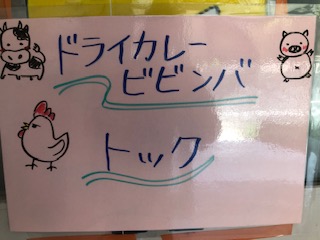 ドライカレー
ビビンバ
トック